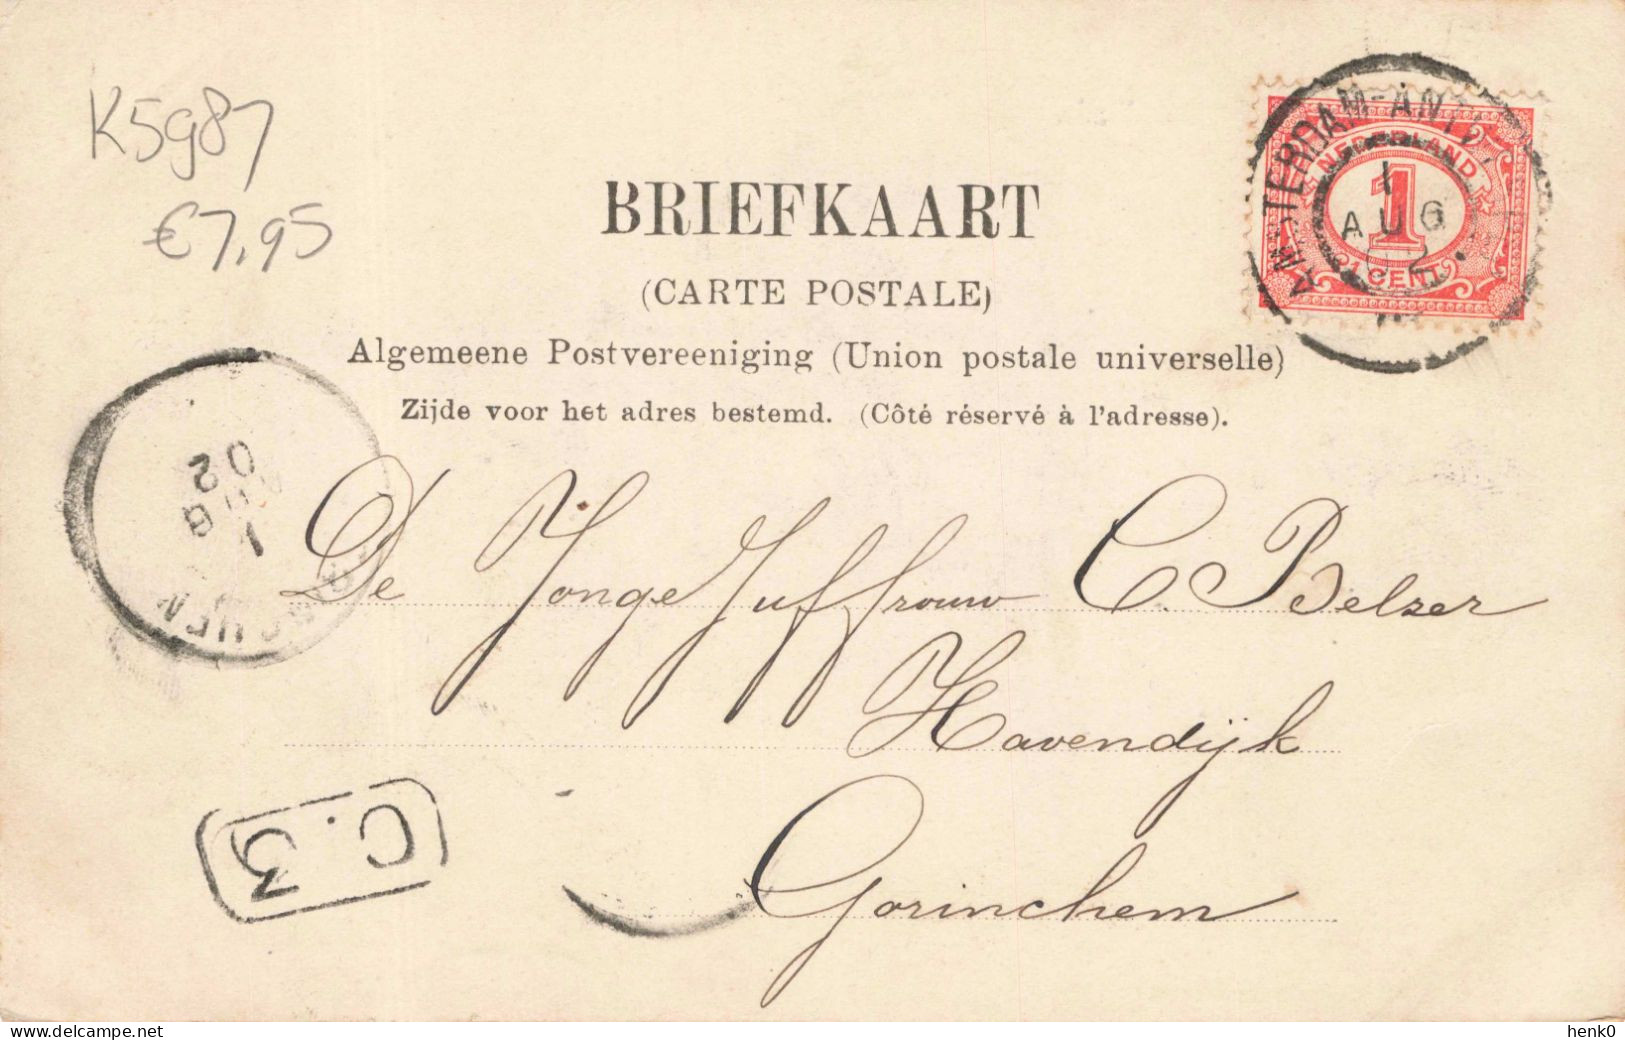 K5987
€7,95
BRIEFKAART
(CARTE POSTALE)
Algemeene Postvereeniging (Union postale universelle)
Zijde voor het adres bestemd. (Côté réservé à l'adresse).
AMSTERDAM-ANTW.
1
AUG
02
NEDERLAND
1
1 CENT
02
AUG
1
De Jonge Juffrouw C. Belzer
Havendijk
Gorinchem
C.3
www.delcampe.net
henk0